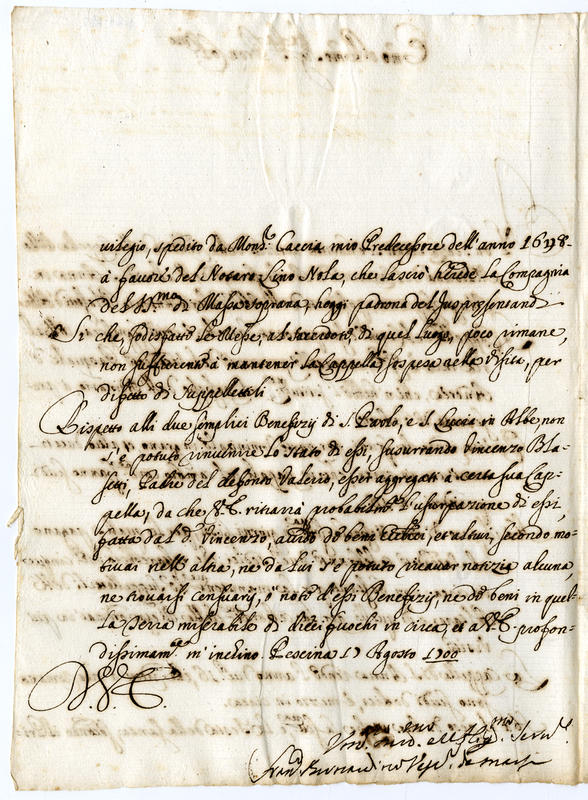 uilegio, spedito da Mons.r Caccia mio Predecessore dell'anno 1648
à favore del Notaro Lino Nola, che lasciò herede la Compagnia
del SS.mo di Massa soprana, hoggi padrona del Juspresentand
Si che, sodisfatto le Messe, al sacerdote di quel Luogo, poco rimane,
non sufficiente à mantener la Cappella sospesa nella visita, per
difetto di suppellettili
Rispetto alli due semplici Benefizij di S. Paolo, e S. Lucia in Albe, non
s'è potuto rinuenire lo stato di essi, susurrando Vincenzo Bla-
setti, Padre del defonto Valerio, esser aggregati à certa sua Cap-
pella, da che V.E. ritrarrà probabilm.te l'usurpazione di essi,
fatta dal d.o Vincenzo, auido de beni Eccl.ci, et altrui, secondo mo-
tiuai nell'altra, ne da lui s'è potuto ricauar notizia alcuna,
ne trouarsi censuarij, ò noti d'essi Benefizij, ne de beni in quel-
la Terra miserabile di dieci fuochi in circa, et a V.E. profon-
dissimam.te m'inchino Pescina 17 Agosto 1700
D. V. E.
Hum.mo Dev.mo et Obl.mo Serv.re
Fran.co Bernardino Vesc.o de Marsi